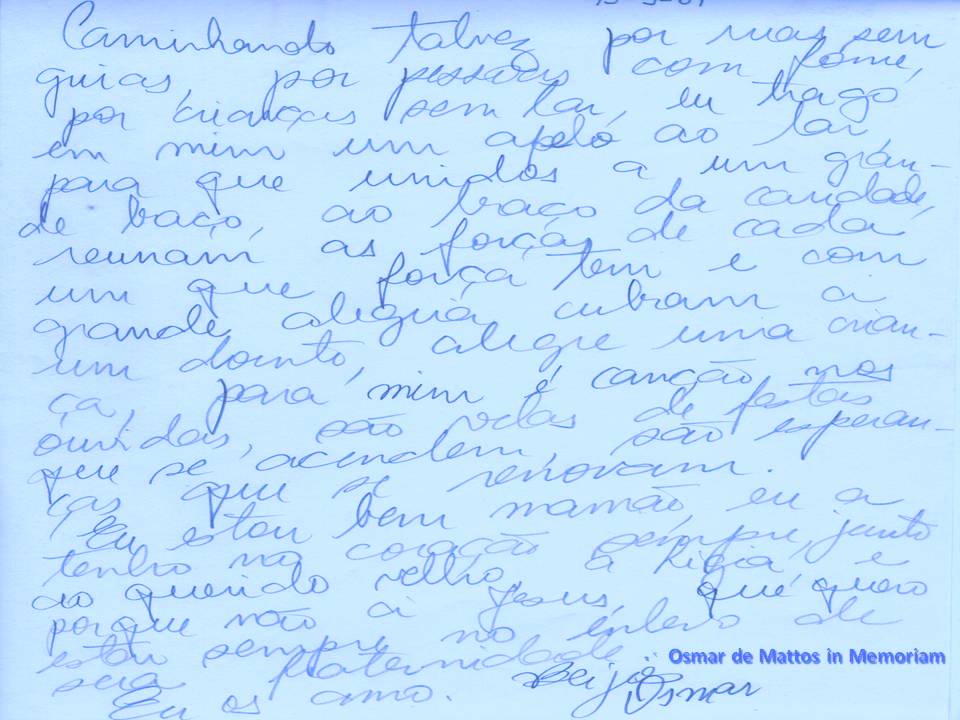 Caminhando talvez por ruas sem
guias, por pessoas com fome,
por crianças sem lar, eu trago
em mim um apelo ao lar,
para que unidos a um gran-
de baço, ao braço da caridade,
reunam as forças de cada
um que força tem e com
grande alegria cubram a
um doente, alegre uma crian-
ça, para mim é canção nos
ouvidos, são velas de festas
que se acendem, são esperan-
ças que se renovam.
Eu estou bem mamãe, eu a
tenho no coração sempre, junto
ao querido velho, a Ligia e
porque não a Jesus, que quero
estar sempre no enlevo de
seia fraternidade.
Eu os amo. Beijos Osmar
Osmar de Mattos in Memoriam